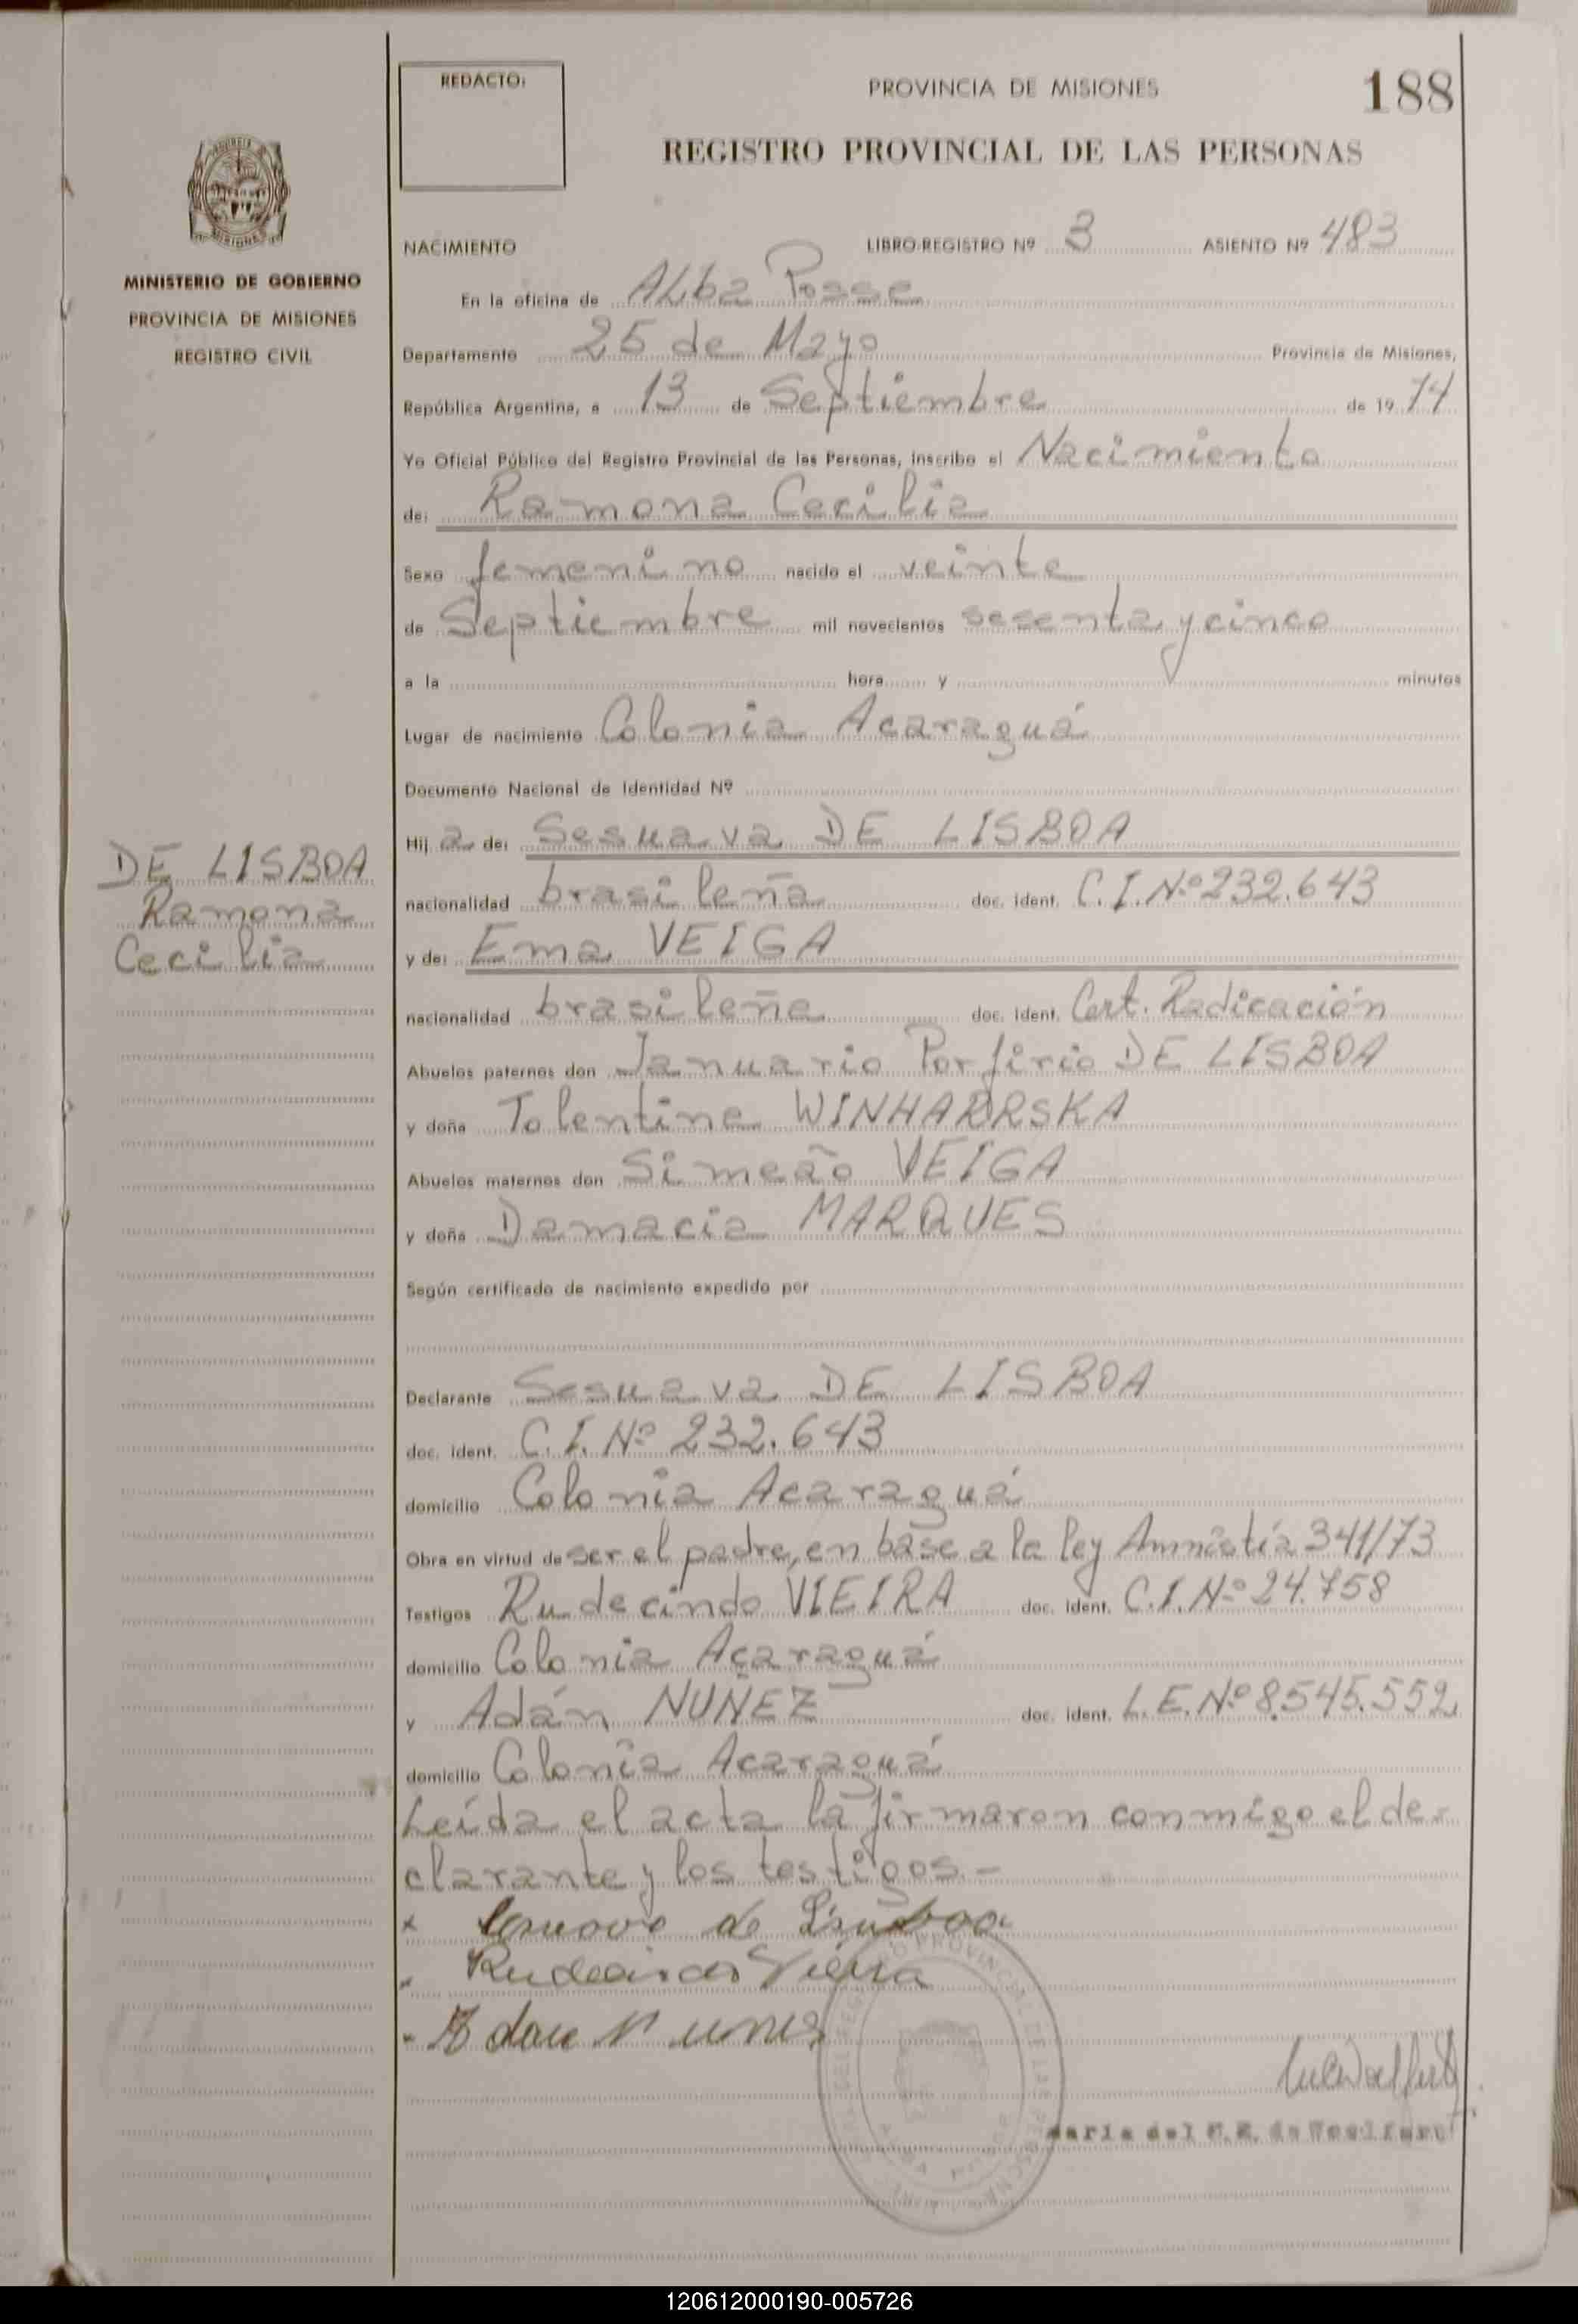 REDACTO:
PROVINCIA DE MISIONES
188
REGISTRO PROVINCIAL DE LAS PERSONAS
MINISTERIO DE GOBIERNO
PROVINCIA DE MISIONES
REGISTRO CIVIL
NACIMIENTO LIBRO-REGISTRO Nº 3 ASIENTO Nº 483
En la oficina de Alba Posse
Departamento 25 de Mayo Provincia de Misiones,
República Argentina, a 13 de Septiembre de 1974
Yo Oficial Público del Registro Provincial de las Personas, inscribo el Nacimiento
de: Ramona Cecilia
Sexo femenino nacido el veinte
de Septiembre mil novecientos sesenta y cinco
a la hora y minutos
Lugar de nacimiento Colonia Acaraguá
Documento Nacional de Identidad Nº
DE LISBOA
Ramona
Cecilia
Hija de: Sesuava DE LISBOA
nacionalidad brasileña doc. ident. C.I.Nº 232.643
y de: Ema VEIGA
nacionalidad brasileña doc. ident. Cert. Radicación
Abuelos paternos don Januario Porfirio DE LISBOA
y doña Tolentina WINHARRSKA
Abuelos maternos don Simeão VEIGA
y doña Damacia MARQUES
Según certificado de nacimiento expedido por
Declarante Sesuava DE LISBOA
doc. ident. C.I. Nº 232.643
domicilio Colonia Acaraguá
Obra en virtud de ser el padre, en base a la ley Amnistía 341/73
Testigos Rudecindo VIEIRA doc. ident. C.I.Nº 24.758
domicilio Colonia Acaraguá
y Adán NUÑEZ doc. ident. L.E.Nº 8.545.552
domicilio Colonia Acaraguá
Leída el acta la firmaron conmigo el de-
clarante y los testigos.-
de
Rudecindo Vieira
Adan Nunes
Maria del C. R. de Woelfert
120612000190-005726